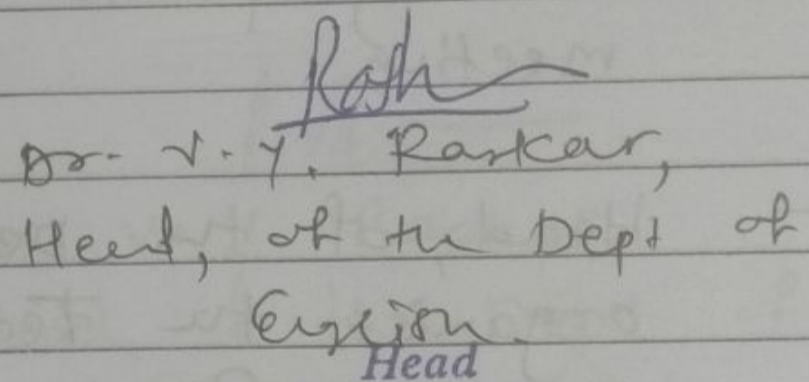 Dr. V. Y. Raskar,
Head, of the Dept of
English.
Head